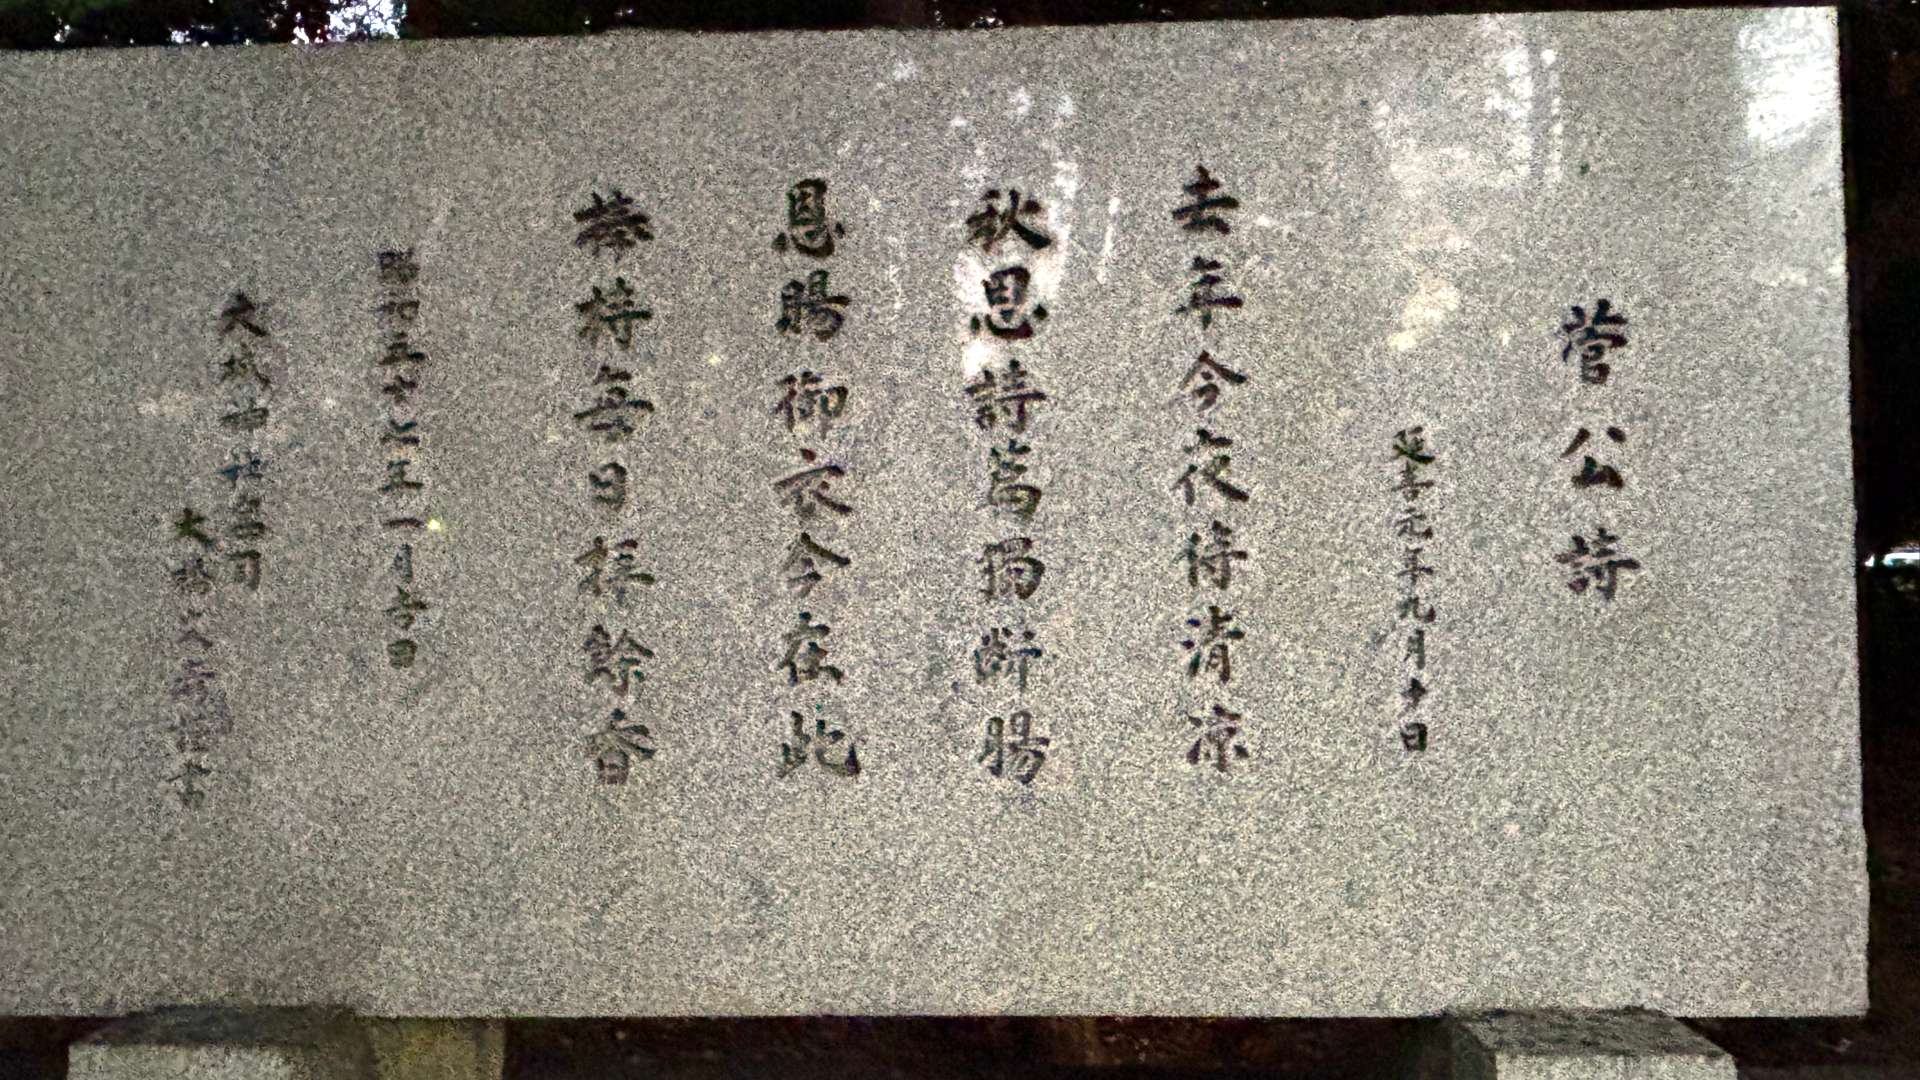 菅公詩
延喜元年九月十日
去年今夜侍清涼
秋思詩篇獨断腸
恩賜御衣今在此
捧持毎日拝餘香
昭和五十七年一月吉日
大城神社宮司
大橋 書